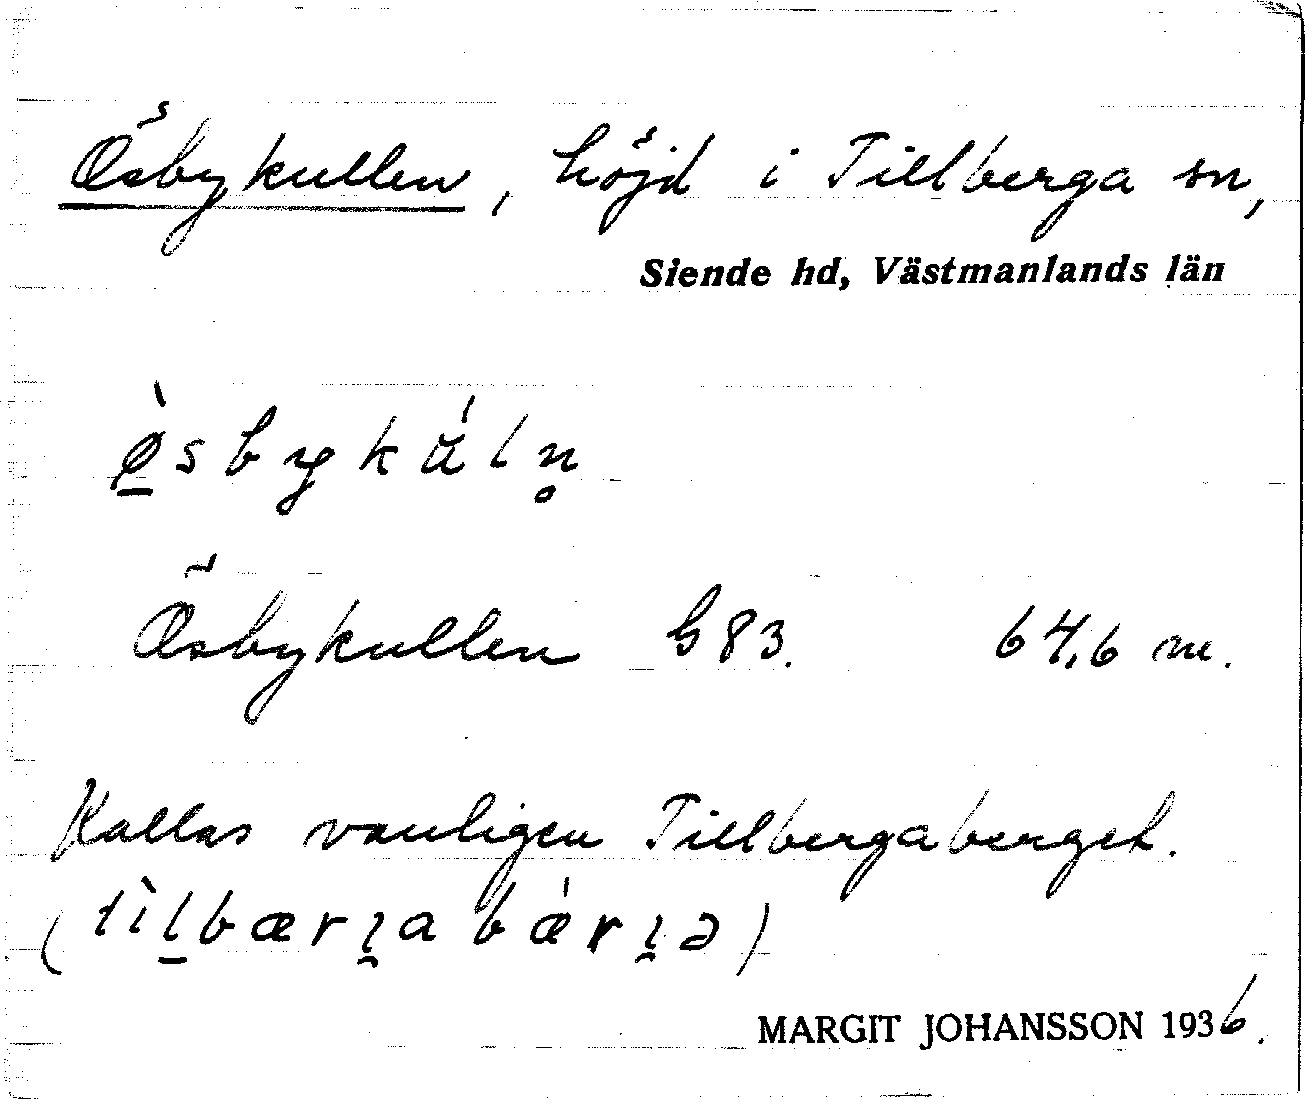 Ösbykullen, höjd i Tillberga sn,
Siende hd, Västmanlands län
ø̠̀sbykŭ́ln̥
Ösbykullen G 83. 64,6 m.
Kallas vanligen Tillbergaberget.
(tìl̠bæri̯abǽri̯ə)
MARGIT JOHANSSON 1936.